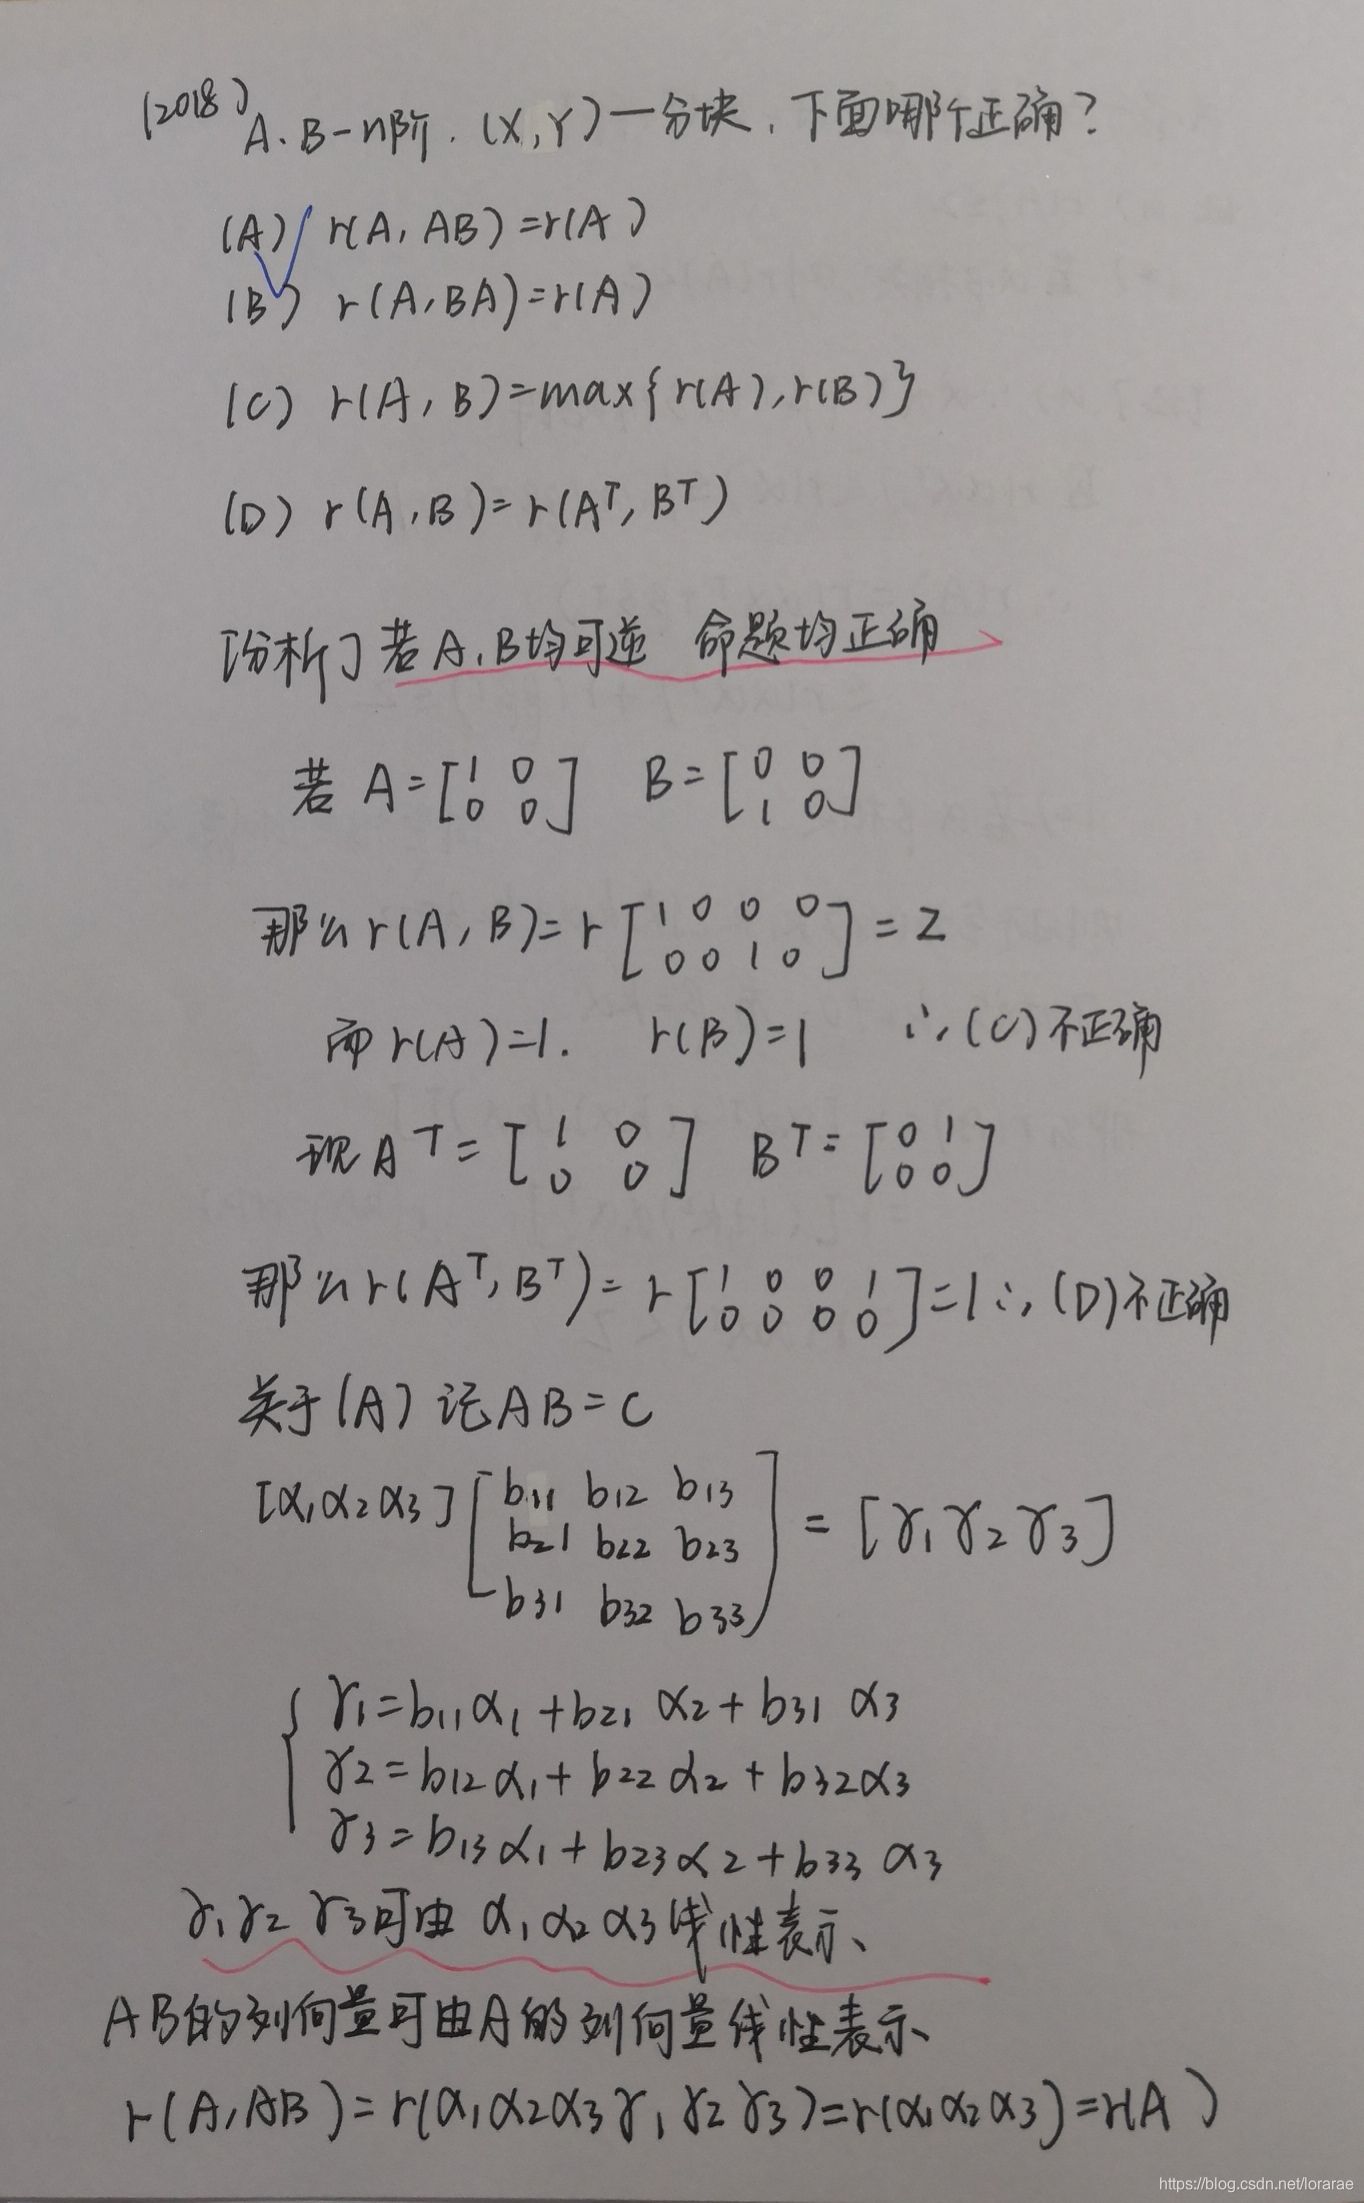 (2018)
A.B-n阶.(X,Y)一分块.下面哪个正确?
(A) r(A, AB)=r(A)
(B) r(A,BA)=r(A)
(C) r(A,B)=max{r(A),r(B)}
(D) r(A,B)=r(Aᵀ, Bᵀ)
[分析]若A,B均可逆 命题均正确
若 A=[1 0 B=[0 0
0 0] 1 0]
那么r(A,B)=r[1 0 0 0 =2
0 0 1 0]
而r(A)=1. r(B)=1 ∴(C)不正确
现Aᵀ=[1 0 Bᵀ=[0 1
0 0] 0 0]
那么r(Aᵀ,Bᵀ)=r[1 0 0 1 =1∴(D)不正确
0 0 0 0]
关于(A)记AB=C
[α₁α₂α₃][b₁₁ b₁₂ b₁₃
b₂₁ b₂₂ b₂₃ =[γ₁γ₂γ₃]
b₃₁ b₃₂ b₃₃]
{γ₁=b₁₁α₁+b₂₁α₂+b₃₁α₃
γ₂=b₁₂α₁+b₂₂α₂+b₃₂α₃
γ₃=b₁₃α₁+b₂₃α₂+b₃₃α₃
γ₁γ₂γ₃可由α₁α₂α₃线性表示、
AB的列向量可由A的列向量线性表示、
r(A,AB)=r(α₁α₂α₃γ₁γ₂γ₃)=r(α₁α₂α₃)=r(A)
https://blog.csdn.net/lorarae